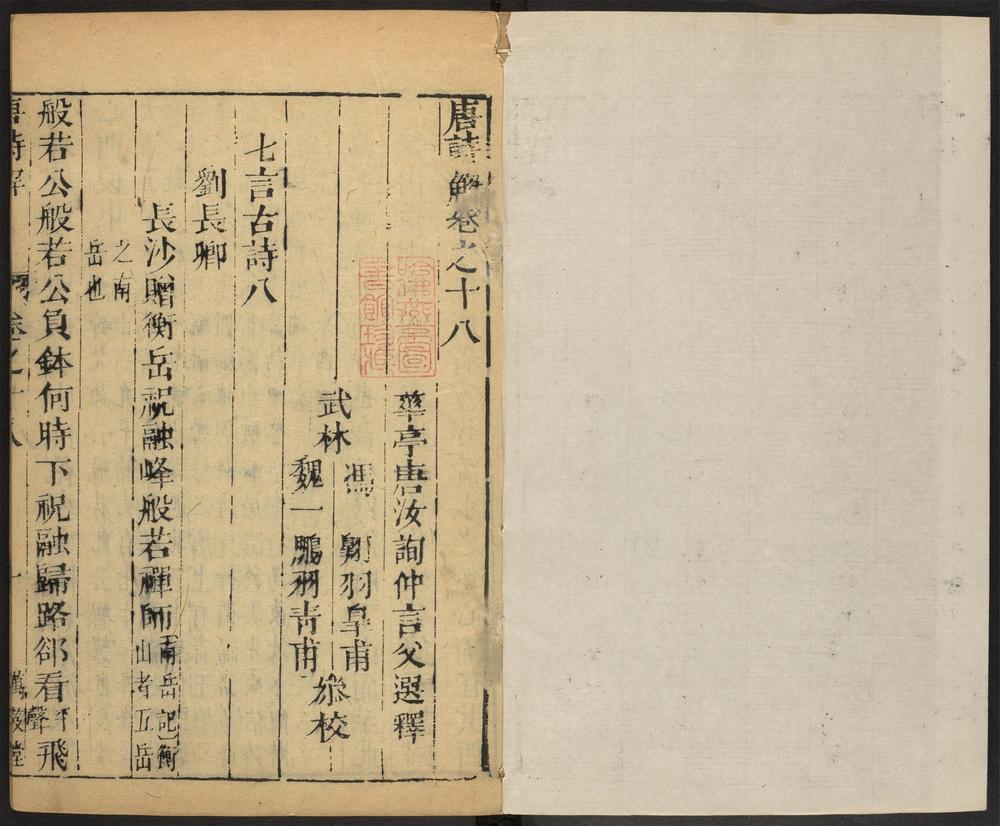 唐詩解卷之十八
華亭唐汝詢仲言父選釋
武林
馮 翾羽皐甫
魏一鵬羽青甫
叅校
七言古詩八
劉長卿
長沙贈衡岳祝融峰般若禪師
南岳記衡
山者五岳
之南
岳也
般若公般若公負鉢何時下祝融歸路郤看平聲飛
唐詩解
卷之十八
一
萬笈堂